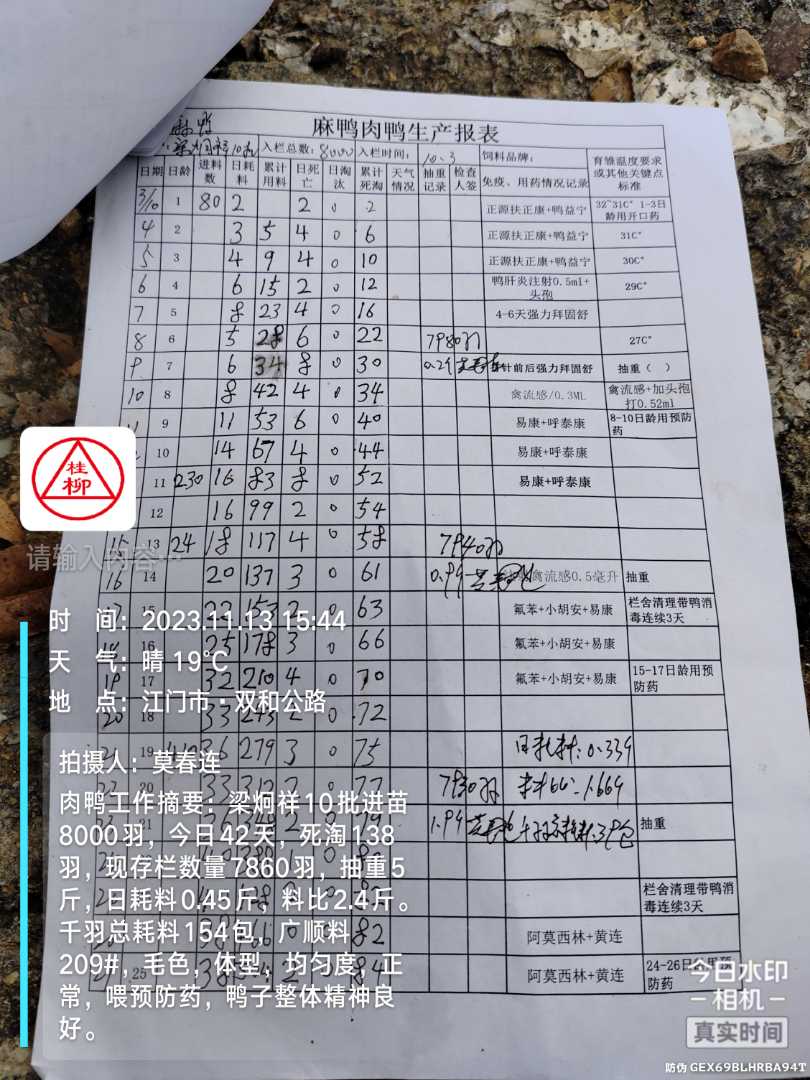 麻鸭肉鸭生产报表
入栏总数: 8000 入栏时间: 10.3 饲料品牌: 育雏温度要求或其他关键点标准
日期 日龄 进料数 日耗料 累计用料 日死亡 日淘汰 累计死淘 天气情况 抽重记录 检查人签 免疫、用药情况记录
3/10 1 80 2 2 0 2 正源扶正康+鸭益宁 32~31C° 1-3日龄用开口药
4 2 3 5 4 0 6 正源扶正康+鸭益宁 31C°
5 3 4 9 4 0 10 正源扶正康+鸭益宁 30C°
6 4 6 15 2 0 12 鸭肝炎注射0.5ml+头孢 29C°
7 5 8 23 4 0 16 4-6天强力拜固舒
8 6 5 28 6 0 22 7980羽 27C°
9 7 6 34 8 0 30 针前后强力拜固舒 抽重（ ）
10 8 8 42 4 0 34 禽流感/0.3ML 禽流感+加头孢打0.52ml
9 11 53 6 0 40 易康+呼泰康 8-10日龄用预防药
10 14 67 4 0 44 易康+呼泰康
11 230 16 83 8 0 52 易康+呼泰康
12 16 99 2 0 54
15 13 24 18 117 4 0 58 7940羽
16 14 20 137 3 0 61 禽流感0.5毫升 抽重
15 22 153 2 0 63 氟苯+小胡安+易康 栏舍清理带鸭消毒连续3天
16 25 178 3 0 66 氟苯+小胡安+易康
17 32 210 4 0 70 氟苯+小胡安+易康 15-17日龄用预防药
20 18 33 243 2 0 72
19 36 279 3 0 75 日耗料:0.339
20 33 312 2 77 7930羽 1.664
21 抽重
栏舍清理带鸭消毒连续3天
82 阿莫西林+黄连
25 38 84 阿莫西林+黄连 24-26日
防药
桂柳
请输入内容…
时 间: 2023.11.13 15:44
天 气: 晴 19℃
地 点: 江门市·双和公路
拍摄人: 莫春连
肉鸭工作摘要: 梁炯祥10批进苗
8000羽，今日42天，死淘138
羽，现存栏数量7860羽，抽重5
斤，日耗料0.45斤，料比2.4斤。
千羽总耗料154包，广顺料
209#，毛色，体型，均匀度，正
常，喂预防药，鸭子整体精神良
好。
今日水印
相机
真实时间
防伪 GEX69BLHRBA94T